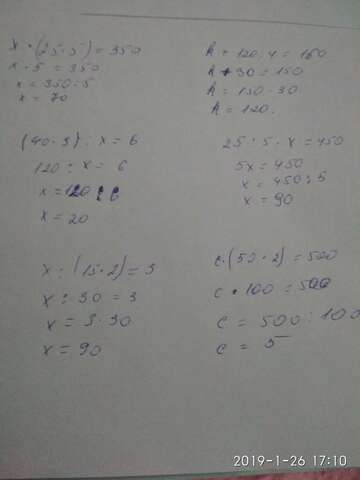 x · (25 : 5) = 350
x · 5 = 350
x = 350 : 5
x = 70
k + 120 : 4 = 150
k + 30 = 150
k = 150 - 30
k = 120.
(40 · 3) : x = 6
120 : x = 6
x = 120 : 6
x = 20
25 : 5 · x = 450
5x = 450
x = 450 : 5
x = 90
x : (15 · 2) = 3
x : 30 = 3
x = 3 · 30
x = 90
c · (50 · 2) = 500
c · 100 = 500
c = 500 : 100
c = 5
2019-1-26 17:10